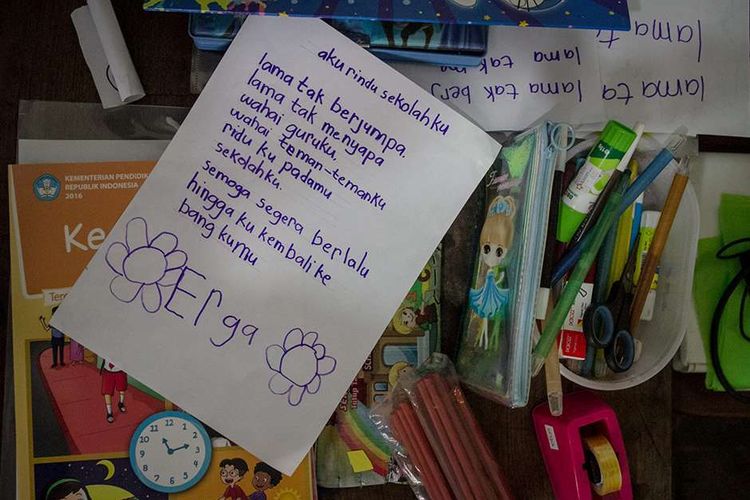 aku rindu sekolahku
lama tak berjumpa.
lama tak menyapa
wahai guruku,
wahai teman-temanku
ridu ku padamu
sekolahku.
semoga segera berlalu
hingga ku kembali ke
bang kumu
Erga
KEMENTERIAN PENDIDIK
REPUBLIK INDONESIA
2016
Ke
Te
lama ta
lama tak
lama tak berj
lama t